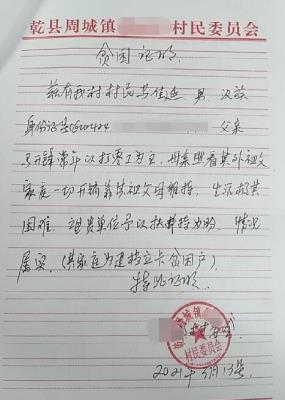 乾县周城镇 村民委员会
贫困证明
兹有我村村民马佳延 男 汉族
身份证号610424 父亲
马 常年以打零工为主,母亲照看其外祖父
家庭一切开销靠其祖父母维持,生活极其
困难,望贵单位予以扶持为盼,情况
属实。(其家庭为建档立卡贫困户)
特此证明
周城镇
村民委员会
2021年 月13号